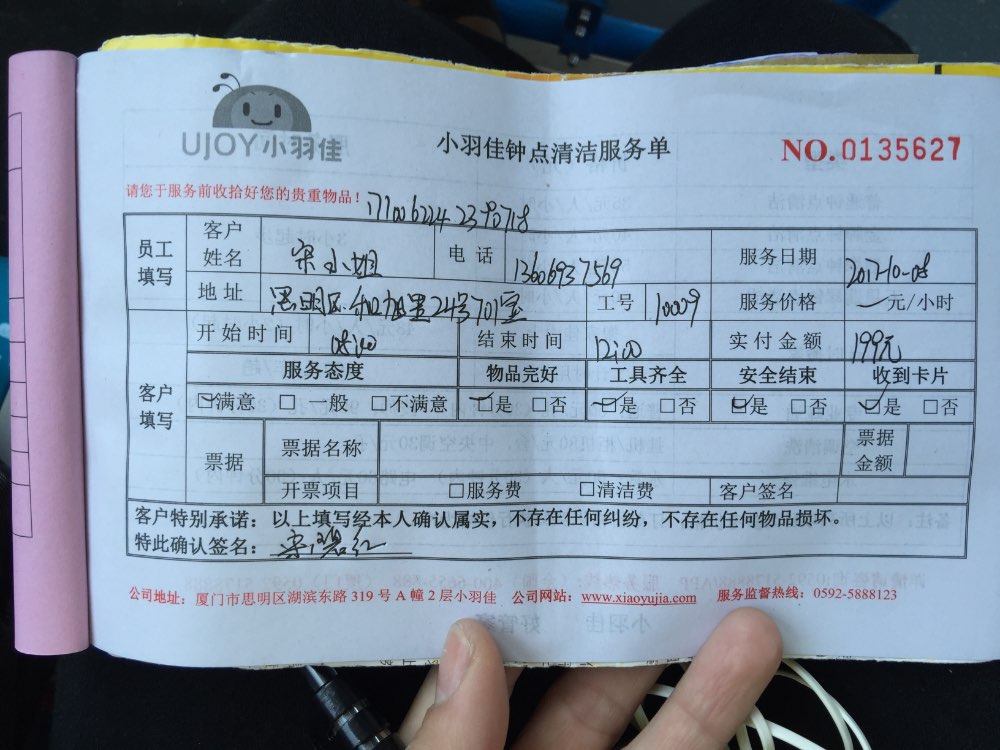 UJOY小羽佳
小羽佳钟点清洁服务单
NO.0135627
请您于服务前收拾好您的贵重物品！
员工填写 客户姓名 宋小姐 电话 13606937569 服务日期 2017-10-08
地址 思明区 24号701室 工号 10009 服务价格 一元/小时
客户填写 开始时间 08:00 结束时间 12:00 实付金额 199元
服务态度 物品完好 工具齐全 安全结束 收到卡片
☑满意 □一般 □不满意 ☑是 □否 ☑是 □否 ☑是 □否 ☑是 □否
票据 票据名称 票据金额
开票项目 □服务费 □清洁费 客户签名
客户特别承诺：以上填写经本人确认属实，不存在任何纠纷，不存在任何物品损坏。
特此确认签名：
公司地址：厦门市思明区湖滨东路 319 号 A 幢 2 层小羽佳 公司网站：www.xiaoyujia.com 服务监督热线：0592-5888123